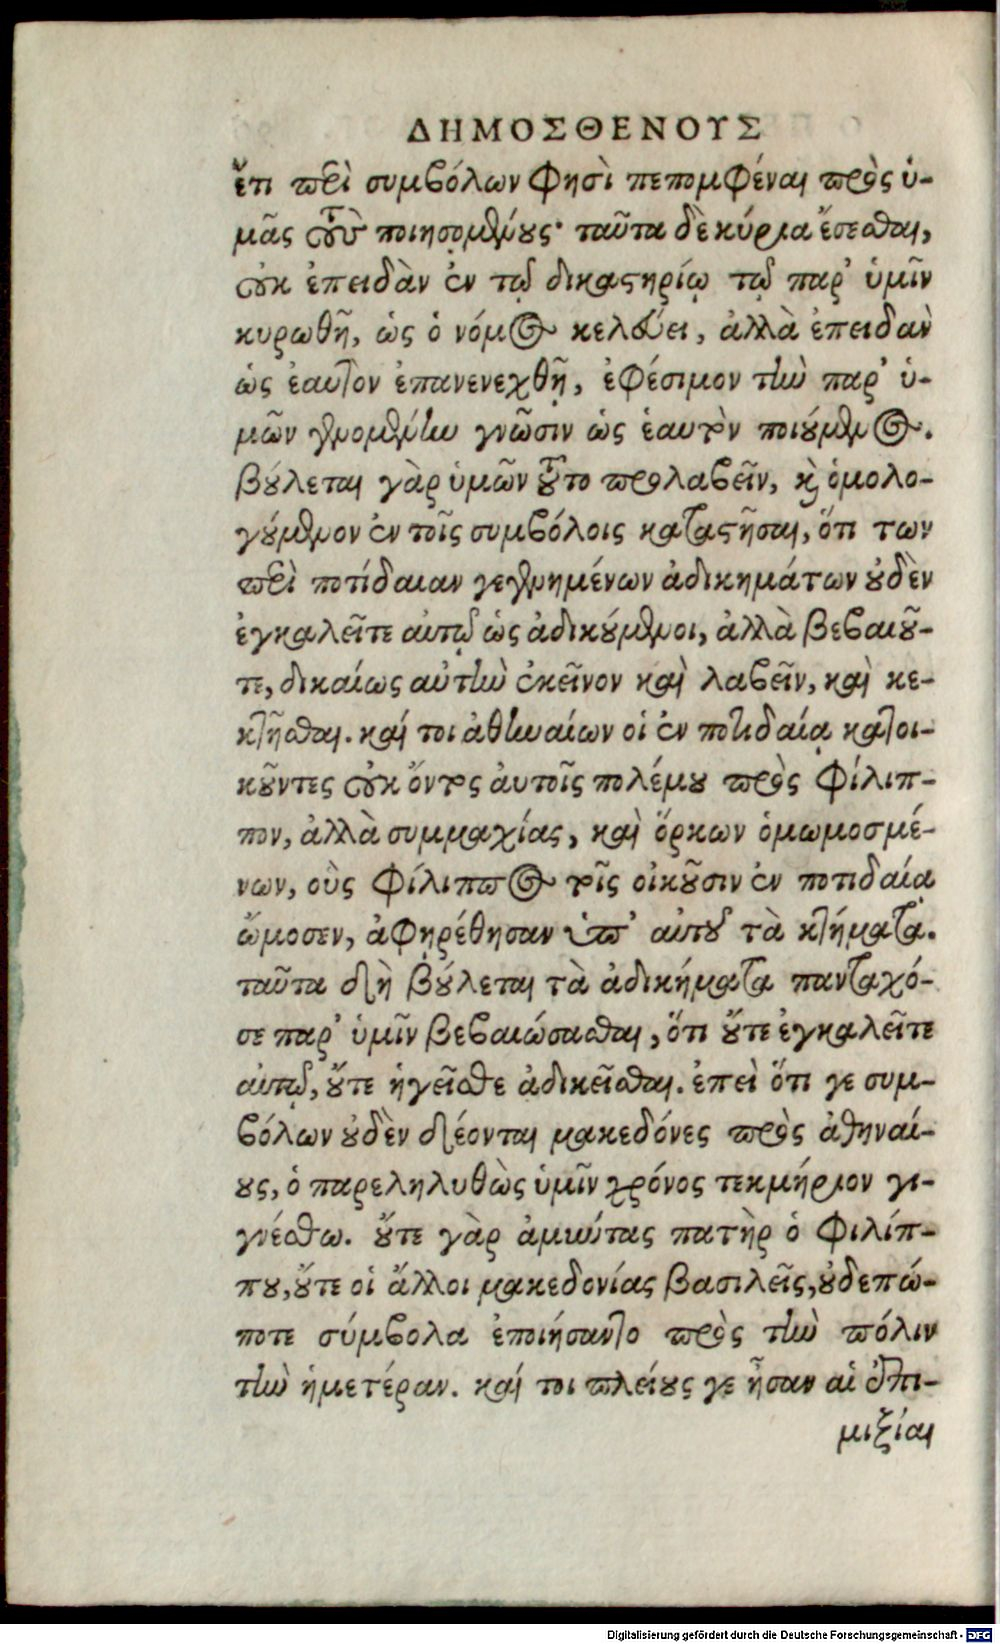 ΔΗΜΟΣΘΕΝΟΥΣ
ἔτι περὶ συμβόλων φησὶ πεπομφέναι πρὸς ὑ-
μᾶς τοὺς ποιησομένους· ταῦτα δὲ κύρια ἔσεσθαι,
οὐκ ἐπειδὰν ἐν τῷ δικαστηρίῳ τῷ παρ’ ὑμῖν
κυρωθῆ, ὡς ὁ νόμος κελεύει, ἀλλὰ ἐπειδὰν
ὡς ἑαυτον ἐπανενεχθῇ, ἐφέσιμον τὴν παρ’ ὑ-
μῶν γενομένην γνῶσιν ὡς ἑαυτὸν ποιούμενος.
βούλεται γὰρ ὑμῶν τοῦτο προλαβεῖν, καὶ ὁμολο-
γούμενον ἐν τοῖς συμβόλοις καταστῆσαι, ὅτι των
περὶ ποτίδαιαν γεγενημένων ἀδικημάτων οὐδὲν
ἐγκαλεῖτε αὐτῷ ὡς ἀδικούμενοι, ἀλλὰ βεβαιοῦ-
τε, δικαίως αὐτὴν ἐκεῖνον καὶ λαβεῖν, καὶ κε-
κτῆσθαι. καί τοι ἀθηναίων οἱ ἐν ποτιδαίᾳ κατοι-
κοῦντες οὐκ ὄντος ἀυτοῖς πολέμου πρὸς Φίλιπ-
πον, ἀλλὰ συμμαχίας, καὶ ὅρκων ὁμωμοσμέ-
νων, οὓς Φίλιππος τοῖς οἰκοῦσιν ἐν ποτιδαία
ὤμοσεν, ἀφῃρέθησαν ὑπ’ αὐτοῦ τὰ κτήματα.
ταῦτα δὴ βούλεται τὰ ἀδικήματα πανταχό-
σε παρ’ ὑμῖν βεβαιώσασθαι, ὅτι οὔτε ἐγκαλεῖτε
αὐτῷ, οὔτε ἡγεῖσθε ἀδικεῖσθαι. ἐπεὶ ὅτι γε συμ-
βόλων οὐδὲν δέονται μακεδόνες πρὸς ἀθηναί-
ους, ὁ παρεληλυθὼς ὑμῖν χρόνος τεκμήριον γι-
γνέσθω. οὔτε γὰρ ἀμύντας πατὴρ ὁ Φιλίπ-
που, οὔτε οἱ ἄλλοι μακεδονίας βασιλεῖς, οὐδεπώ-
ποτε σύμβολα ἐποιήσαντο πρὸς τὴν πόλιν
τὴν ἡμετέραν. καί τοι πλείους γε ἦσαν αἱ ἐπι-
μιξίαι
Digitalisierung gefördert durch die Deutsche Forschungsgemeinschaft - DFG